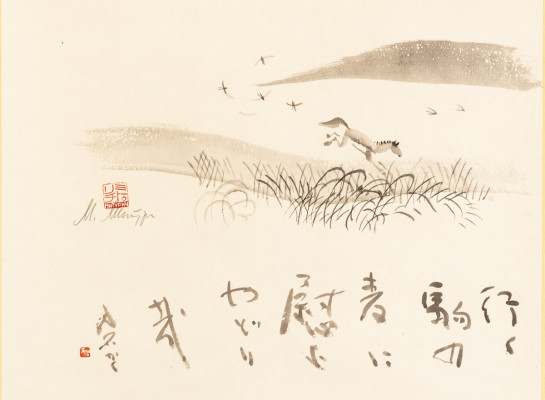 М. Митурич
行く
駒の
麦に
慰む
やどり
哉